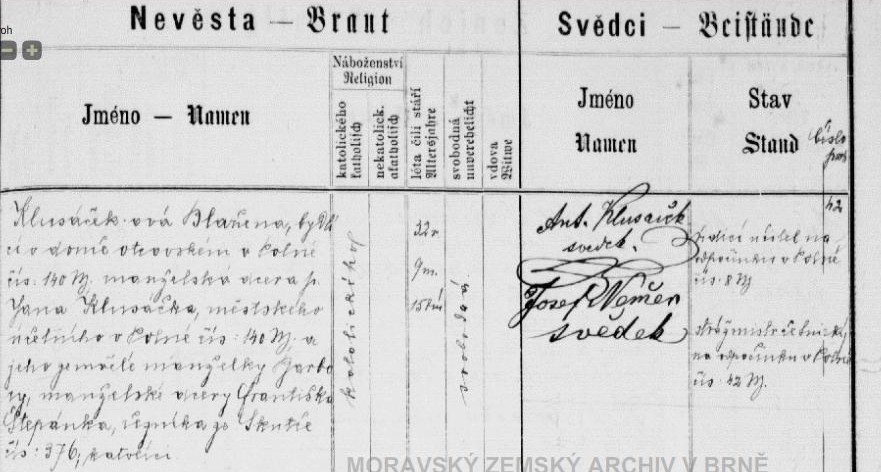 Nevěsta — Braut
Svědci — Beistände
roh
Náboženství
Religion
Jméno — Namen
katolického
katholisch
nekatolick.
akatholisch
léta čili stáří
Altersjahre
svobodná
unverehelicht
vdova
Witwe
Jméno
Namen
Stav
Stand
číslo
Klusáčková Blažena, bydlí
cí v domě otcovském v Polné
čís. 140 M. manželská dcera p.
Jana Klusáčka, městského
účetního v Polné čís. 140 M. a
jeho zemřelé manželky Barbo
ry, manželské dcery Františka
Štěpánka, řezníka ze Skutče
čís: 376, katolíci.
katolického
32 r.
9 m.
15 dní
svobodná
Ant. Klusáček
svedek.
Josef Němec
svědek
řídící učitel na
odpočinku v Polné
čís. 8 M.
strážmistr četnický
na odpočinku v Polné
čís. 42 M.
42
MORAVSKÝ ZEMSKÝ ARCHIV V BRNĚ